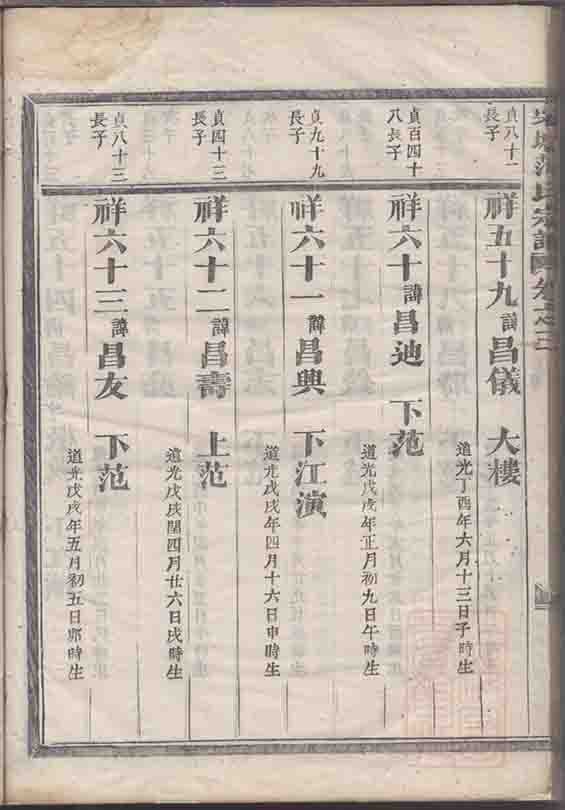 貞八十一
長子
祥五十九 諱昌儀 大樓
道光丁酉年六月十三日子時生
貞百四十
八長子
祥六十 諱昌迪 下范
道光戊戌年正月初九日午時生
貞九十九
長子
祥六十一 諱昌興 下江演
道光戊戌年四月十六日申時生
貞四十三
長子
祥六十二 諱昌壽 上范
道光戊戌閏四月廿六日戌時生
貞八十三
長子
祥六十三 諱昌友 下范
道光戊戌年五月初五日卯時生